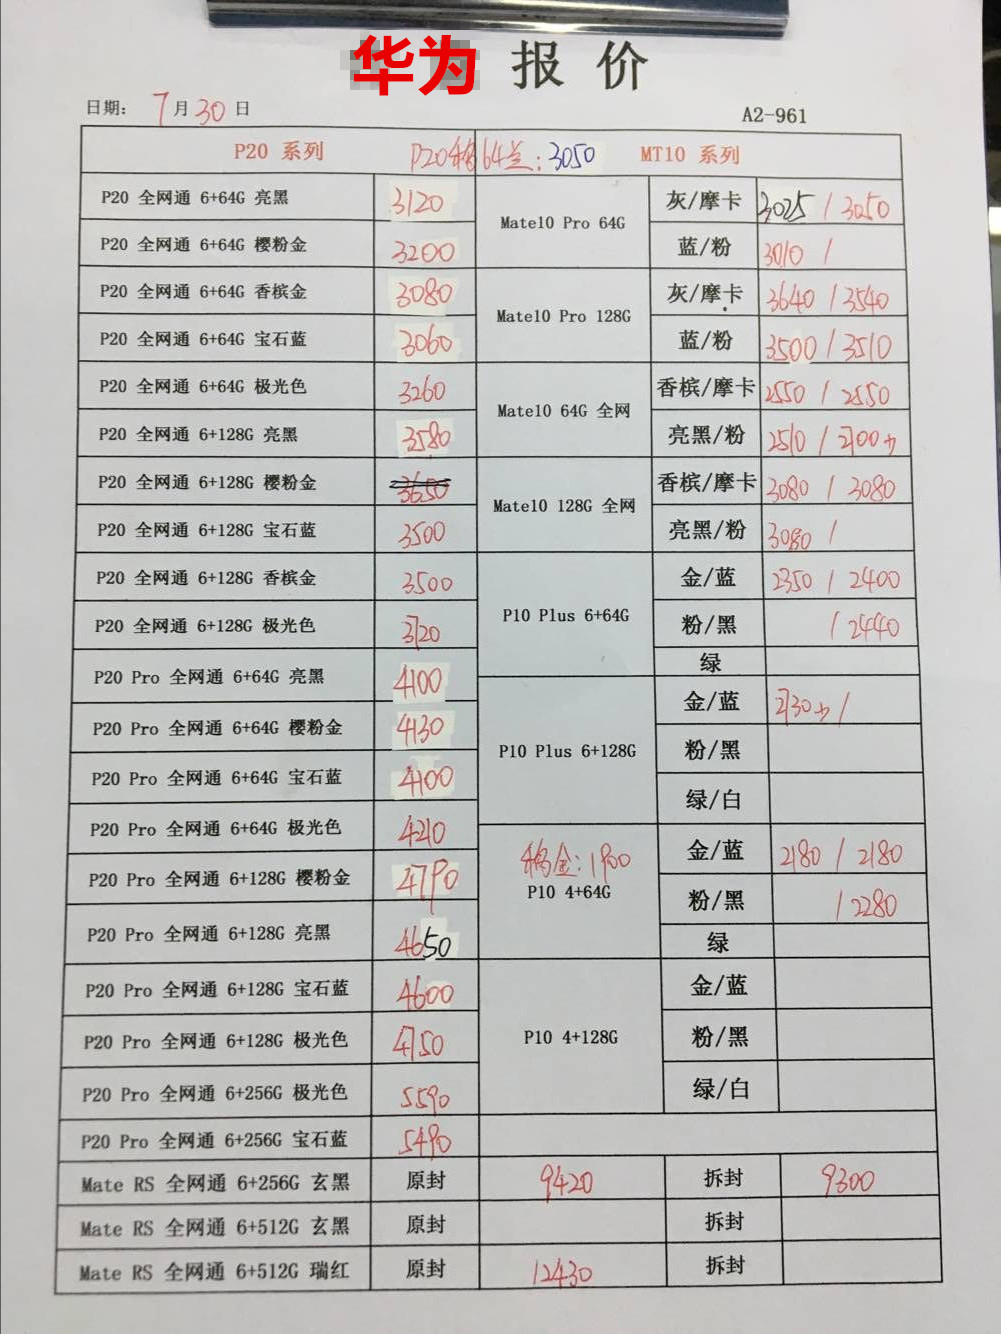 华为 报价
日期: 7月30日 A2-961
P20 系列 P20移64兰:3050 MT10 系列
P20 全网通 6+64G 亮黑 3120 Mate10 Pro 64G 灰/摩卡 3025 / 3050
P20 全网通 6+64G 樱粉金 3200 蓝/粉 3010 /
P20 全网通 6+64G 香槟金 3080 Mate10 Pro 128G 灰/摩卡 3640 / 3540
P20 全网通 6+64G 宝石蓝 3060 蓝/粉 3500 / 3510
P20 全网通 6+64G 极光色 3260 Mate10 64G 全网 香槟/摩卡 2550 / 2550
P20 全网通 6+128G 亮黑 3580 亮黑/粉 2510 / 2700
P20 全网通 6+128G 樱粉金 3650 Mate10 128G 全网 香槟/摩卡 3080 / 3080
P20 全网通 6+128G 宝石蓝 3500 亮黑/粉 3080 /
P20 全网通 6+128G 香槟金 3500 P10 Plus 6+64G 金/蓝 2350 / 2400
P20 全网通 6+128G 极光色 3720 粉/黑 / 2440
绿
P20 Pro 全网通 6+64G 亮黑 4100 P10 Plus 6+128G 金/蓝 2730 /
P20 Pro 全网通 6+64G 樱粉金 4130 粉/黑
P20 Pro 全网通 6+64G 宝石蓝 4100 绿/白
P20 Pro 全网通 6+64G 极光色 4210 移金:1900 P10 4+64G 金/蓝 2180 / 2180
P20 Pro 全网通 6+128G 樱粉金 4790 粉/黑 / 2280
P20 Pro 全网通 6+128G 亮黑 4650 绿
P20 Pro 全网通 6+128G 宝石蓝 4600 P10 4+128G 金/蓝
P20 Pro 全网通 6+128G 极光色 4750 粉/黑
P20 Pro 全网通 6+256G 极光色 5590 绿/白
P20 Pro 全网通 6+256G 宝石蓝 5490
Mate RS 全网通 6+256G 玄黑 原封 9420 拆封 9300
Mate RS 全网通 6+512G 玄黑 原封 拆封
Mate RS 全网通 6+512G 瑞红 原封 12430 拆封